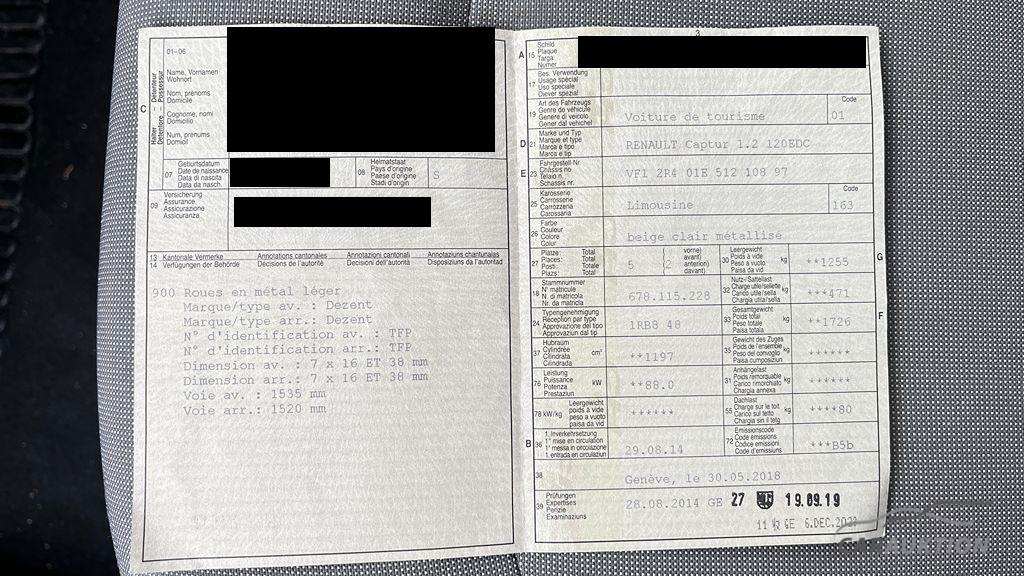 C
Halter – Détenteur
Detentore – Possessur
01–06
Name, Vornamen
Wohnort
Nom, prénoms
Domicile
Cognome, nomi
Domicilio
Num, prenums
Domicil
07
Geburtsdatum
Date de naissance
Data di nascita
Data da nasch.
08
Heimatstaat
Pays d'origine
Paese d'origine
Stadi d'origin
S
09
Versicherung
Assurance
Assicurazione
Assicuranza
13 Kantonale Vermerke
Annotations cantonales
Annotazioni cantonali
Annotaziuns chantunalas
14 Verfügungen der Behörde
Décisions de l'autorité
Decisioni dell'autorità
Disposiziuns da l'autoritad
900 Roues en métal léger
Marque/type av. : Dezent
Marque/type arr.: Dezent
N° d'identification av. : TFP
N° d'identification arr.: TFP
Dimension av. : 7 x 16 ET 38 mm
Dimension arr.: 7 x 16 ET 38 mm
Voie av. : 1535 mm
Voie arr.: 1520 mm
3
A 15
Schild
Plaque
Targa
Numer
17
Bes. Verwendung
Usage spécial
Uso speciale
Diever spezial
19
Art des Fahrzeugs
Genre de véhicule
Genere di veicolo
Gener dal vehichel
Voiture de tourisme
Code
01
D 21
Marke und Typ
Marque et type
Marca e tipo
Marca e tip
RENAULT Captur 1.2 120EDC
E 23
Fahrgestell-Nr.
Châssis no
Telaio n.
Schassis nr.
VF1 2R4 01E 512 108 97
25
Karosserie
Carrosserie
Carrozzeria
Carossaria
Limousine
Code
163
26
Farbe
Couleur
Colore
Colur
beige clair métallisé
27
Plätze: Total
Places: Total
Posti: Totale
Plazs: Total
5
(vorne)
avant)
anteriori)
davant)
(2
30
Leergewicht
Poids à vide
Peso a vuoto
Paisa da vid
kg
**1255
G
18
Stammnummer
N° matricule
N. di matricola
Nr. da matricla
678.115.228
32
Nutz-/Sattellast
Charge utile/sellette
Carico utile/sella
Chargia utila/sella
kg
***471
24
Typengenehmigung
Réception par type
Approvazione del tipo
Approvaziun dal tip
1RB8 48
33
Gesamtgewicht
Poids total
Peso totale
Paisa totala
kg
**1726
F
37
Hubraum
Cylindrée
Cilindrata
Cilindrada
cm³
**1197
35
Gewicht des Zuges
Poids de l'ensemble
Peso del convoglio
Paisa cumposiziun
kg
******
76
Leistung
Puissance
Potenza
Prestaziun
kW
**88.0
31
Anhängelast
Poids remorquable
Carico rimorchiato
Chargia annexa
kg
******
78 kW/kg
Leergewicht
poids à vide
peso a vuoto
paisa da vid
******
55
Dachlast
Charge sur le toit
Carico sul tetto
Chargia sin il tetg
kg
****80
B 36
1. Inverkehrsetzung
1re mise en circulation
1a messa in circolazione
1. entrada en circulaziun
29.08.14
72
Emissionscode
Code émissions
Codice emissioni
Code d'emissiuns
***B5b
38
Genève, le 30.05.2018
39
Prüfungen
Expertises
Perizie
Examinaziuns
28.08.2014 GE
27
19.09.19
GE 6.DEC.